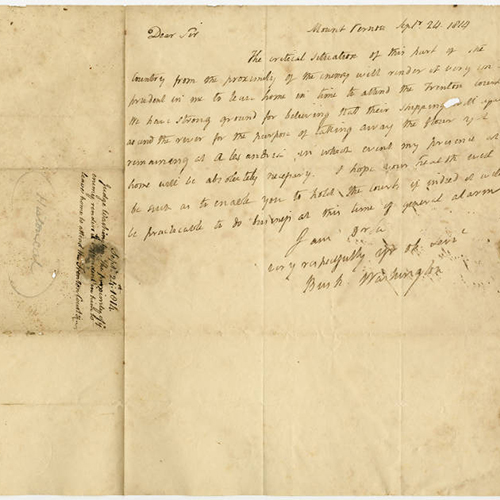 Dear Sir
Mount Vernon Sepr. 24. 1814
The critical situation of this part of the
Country from the proximity of the enemy will render it very im
prudent in me to leave home in time to attend the Trenton court
We have strong ground for believing that their shipping will
ascend the river for the purpose of taking away the flour yet
remaining at Alexandria in which event my presence at
home will be absolutely necessary. I hope your health will
be such as to enable you to hold the courts if indeed it will
be practicable to do business at this time of general alarm
I am Dr Sir
very respectfully yr ob. serv.
Bush. Washington
Sepr. 24. 1814
Judge Washington the proximity of ye
enemy renders
leave home to attend the Trenton Court